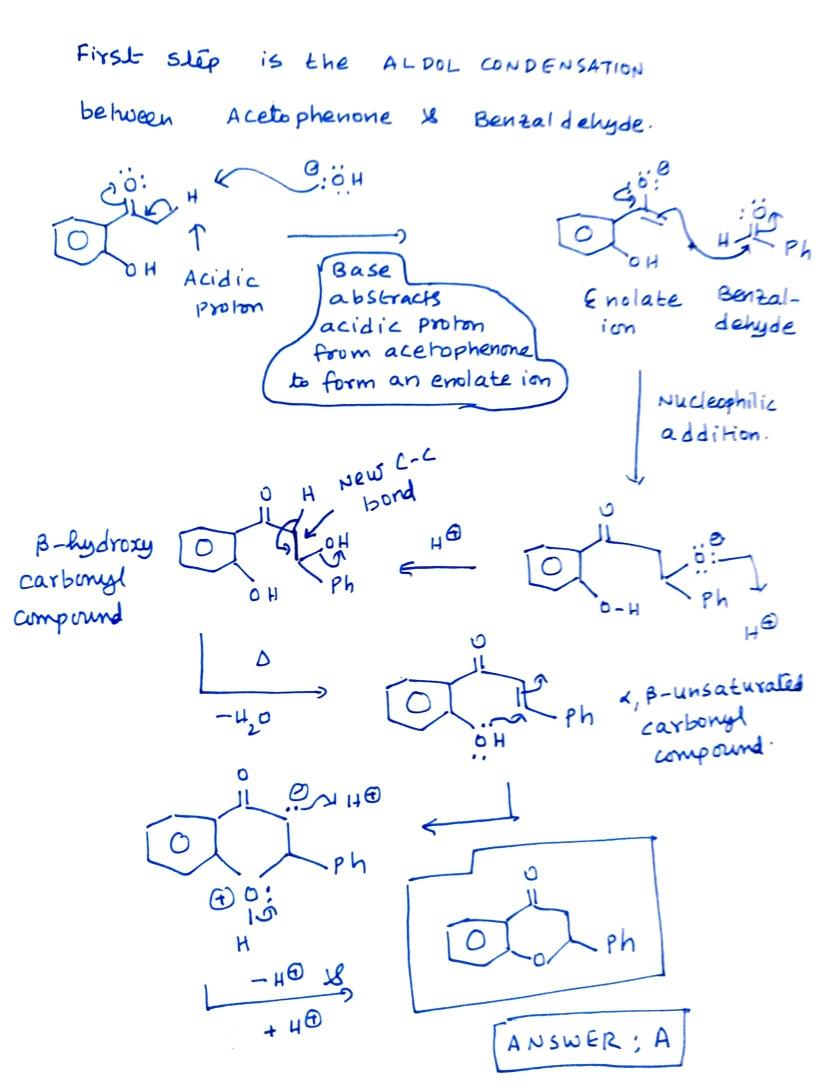 First step is the ALDOL CONDENSATION
between Acetophenone & Benzaldehyde.
O H ⊖:ÖH
OH
Acidic
proton
Base
abstracts
acidic proton
from acetophenone
to form an enolate ion
O⊖
OH
H O Ph
Enolate
ion
Benzal-
dehyde
Nucleophilic
addition.
New C-C
bond
O H
OH
Ph
OH
β-hydroxy
carbonyl
compound
H⊕
O
O⊖
Ph
O-H
H⊕
Δ
-H2O
O
Ph
OH
α, β-unsaturated
carbonyl
compound.
O
⊖ H⊕
Ph
⊕ O:
H
-H⊕ &
+ H⊕
O
O
Ph
ANSWER: A